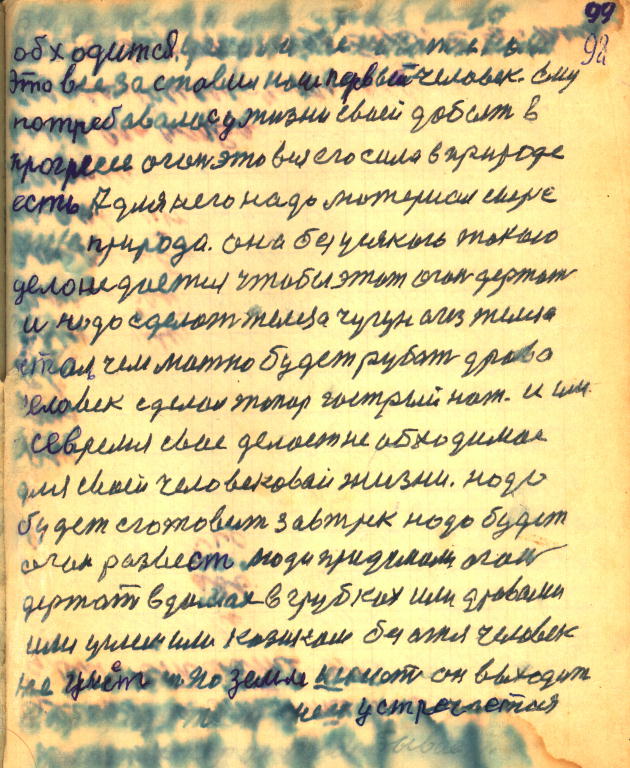 99
98
обходится.
Это все заставил наш первый человек. Ему
потребовалось у жизни своей добыт в
прогрессе огон это вся его сила в природе
есть А для него надо материал сырье
природа. она без усякого такого
дело не дается чтобы этот огон держат
и надо сделат железа чугун а из железа
стал, чем можно будет рубат драва
человек сделал топор гострый нож. и он
все время свое делает не обходимое
для своей человековой жизни. надо
будет сготовит завтрик надо будет
огон развест люди придумали огон
держат в домах в грубках или дровами
или углем или кизяком без огня человек
не умеет по земле он выходит
устречается